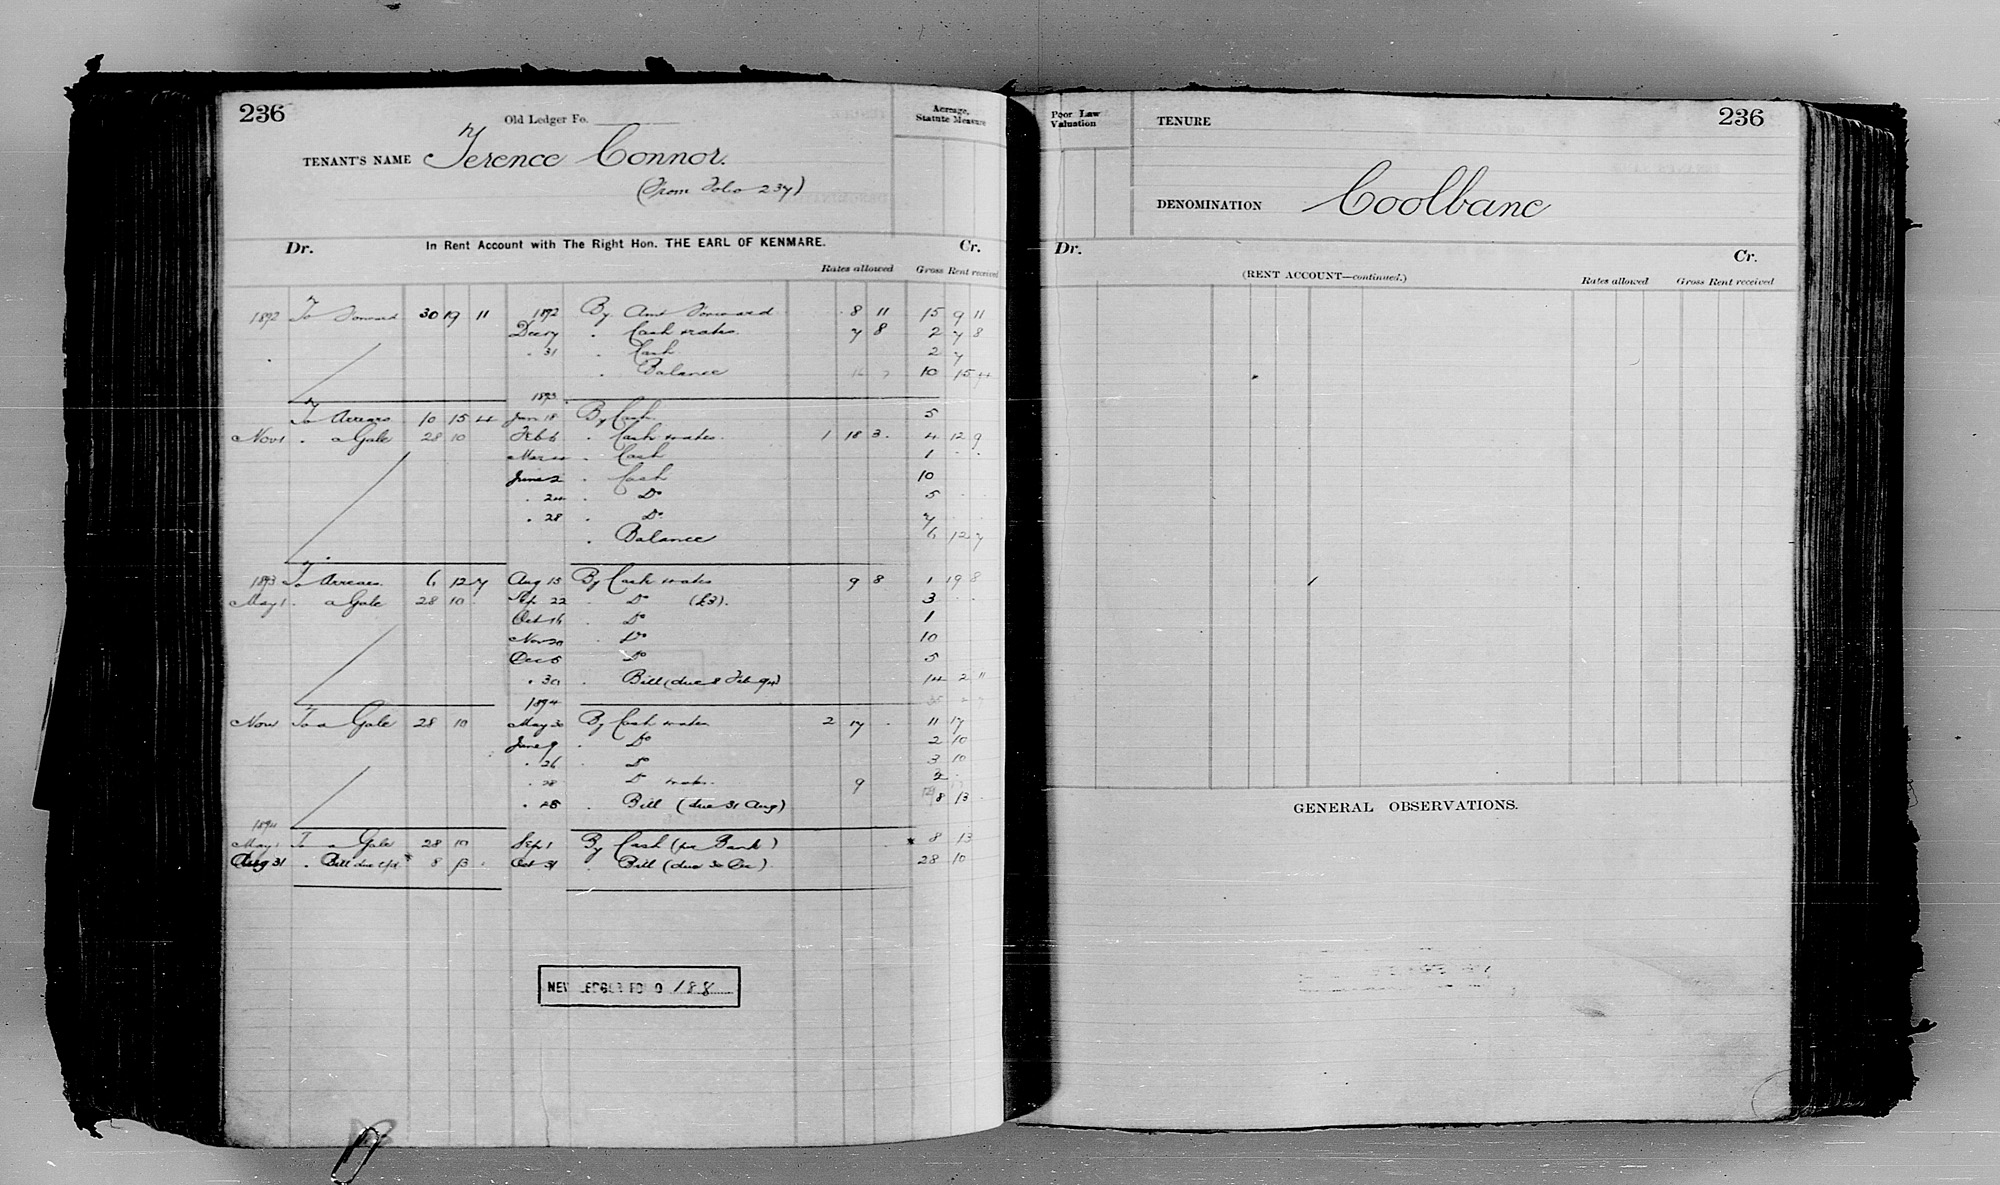 236
Old Ledger Fo.
Acreage, Statute Measure
TENANT'S NAME Terence Connor.
(From Folio 237)
Dr. In Rent Account with The Right Hon. THE EARL OF KENMARE. Cr.
Rates allowed Gross Rent received
1892 To Forward 30 19 11 1892 By Amt Forward 8 11 15 9 11
Decr 7 . Cash & rates 7 8 2 7 8
. 31 . Cash 2 7
. Balance 10 15 4
1893
To Arrears 10 15 4 Jan 18 By Cash 5
Nov 1 . a Gale 28 10 Feb 6 . Cash & rates 1 18 3 4 12 9
Mar . Cash 1
June 2 . Cash 10
. 24 . Do 5
. 28 . Do 7
. Balance 6 12 7
1893 To Arrears 6 12 7 Aug 15 By Cash & rates 9 8 1 19 8
May 1 . a Gale 28 10 Sep 22 . Do (£3). 3
Oct 16 . Do 1
Nov 20 . Do 10
Dec 5 Do 5
. 30 . Bill (due 8 Feb 94) 14 2 11
1894
Nov To a Gale 28 10 May 30 By Cash & rates 2 17 11 17
June 9 . Do 2 10
. 26 Do 3 10
. 28 Do & rates 9 2
. 28 . Bill (due 31 Aug) 8 13
1894
May 1 To a Gale 28 10 Sep 1 By Cash (per Bank) * 8 13
Aug 31 . Bill due * 8 13 Oct 31 . Bill (due 30 Dec) 28 10
NEW LEDGER FOLIO 188
Poor Law Valuation
TENURE
236
DENOMINATION Coolbane
Dr. Cr.
(RENT ACCOUNT—continued.)
Rates allowed Gross Rent received
GENERAL OBSERVATIONS.